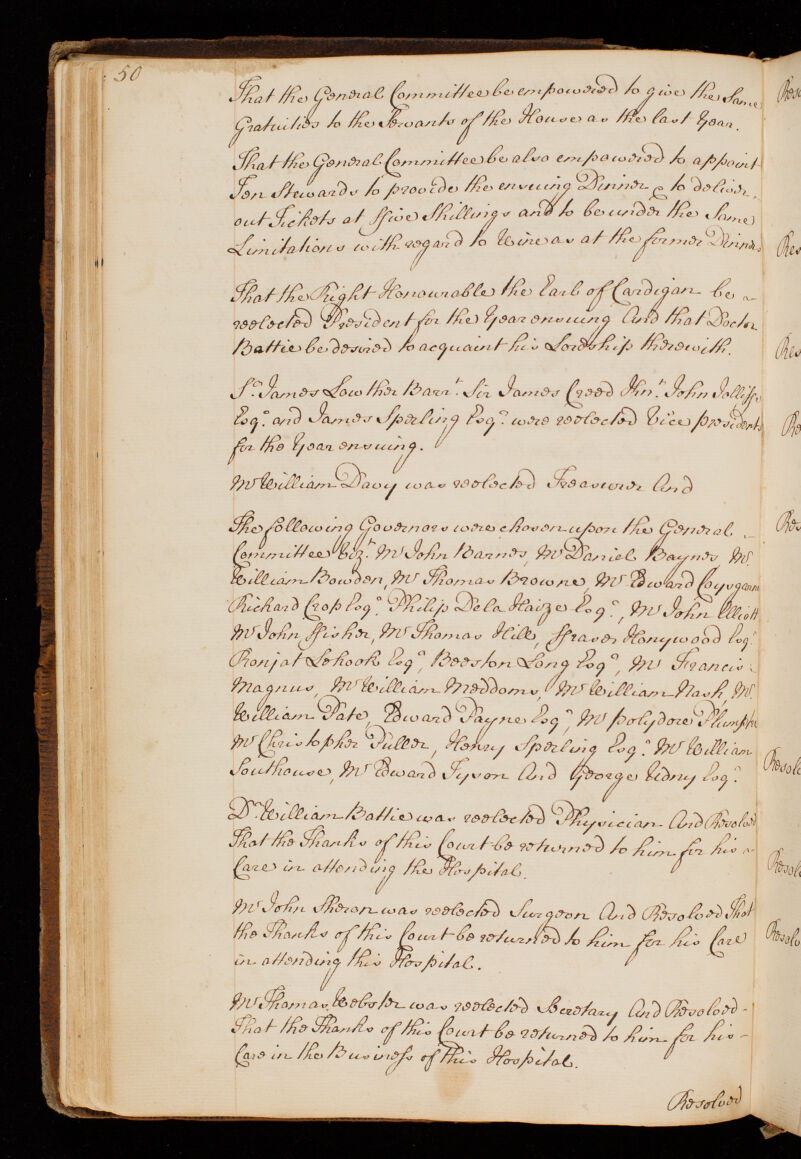 50
That the General Committee be empowered to give the Same
Gratuities to the Servants of the House as the last Year.
That the General Committee be also empowered to appoint
Ten Stewards to provide the ensuing Dinner & to deliver
out Tickets at ffive Shillings and to be under the Same
Limitations with regard to Wine as at the former Dinner
That the Right Honourable the Earl of Cardigan be
reelected President for the Year ensuing And that Doctor
Battie be desired to acquaint his Lordship therewith.
Sr. James Lowther Barrt. Sir James Creed Knt. John Jolliffe
Esqr. and James Sperling Esqr. were reelected Vice presidents
for the Year ensuing.
Mr William Davy was reelected Treasurer And
The following Governors were chosen upon the General
Committee Vizt. Mr John Barnes, Mr Daniel Baynes Mr.
William Bowden, Mr Thomas Browne, Mr Edward Coysgarne
Richard Crop Esqr. Philip Dela Haize Esqr., Mr John Elliott
Mr John ffisher, Mr Thomas Hill, ffraser Honywood Esqr.
Ronjat Lehook Esqr., Beeston Long Esqr., Mr Francis
Magnus, Mr William Meddoms, Mr William Nash, Mr.
William Pate, Edward Payne Esqr., Mr polydore Plumptre
Mr Christopher Puller, Henry Sperling Esqr. Mr William
Southouse, Mr Edward Tyson And George Udny Esqr.
Dr. William Battie was reelected Physician And Resolved
That the Thanks of this Court be returned to him for his
Care in attending the Hospital.
Mr John Sheron was reelected Surgeon And Resolved That
the Thanks of this Court be returned to him for his Care
in attending this Hospital.
Mr Thomas Webster was reelected Secretary And Resolved
That the Thanks of this Court be returned to him for his
Care in the Business of this Hospital.
Resolved